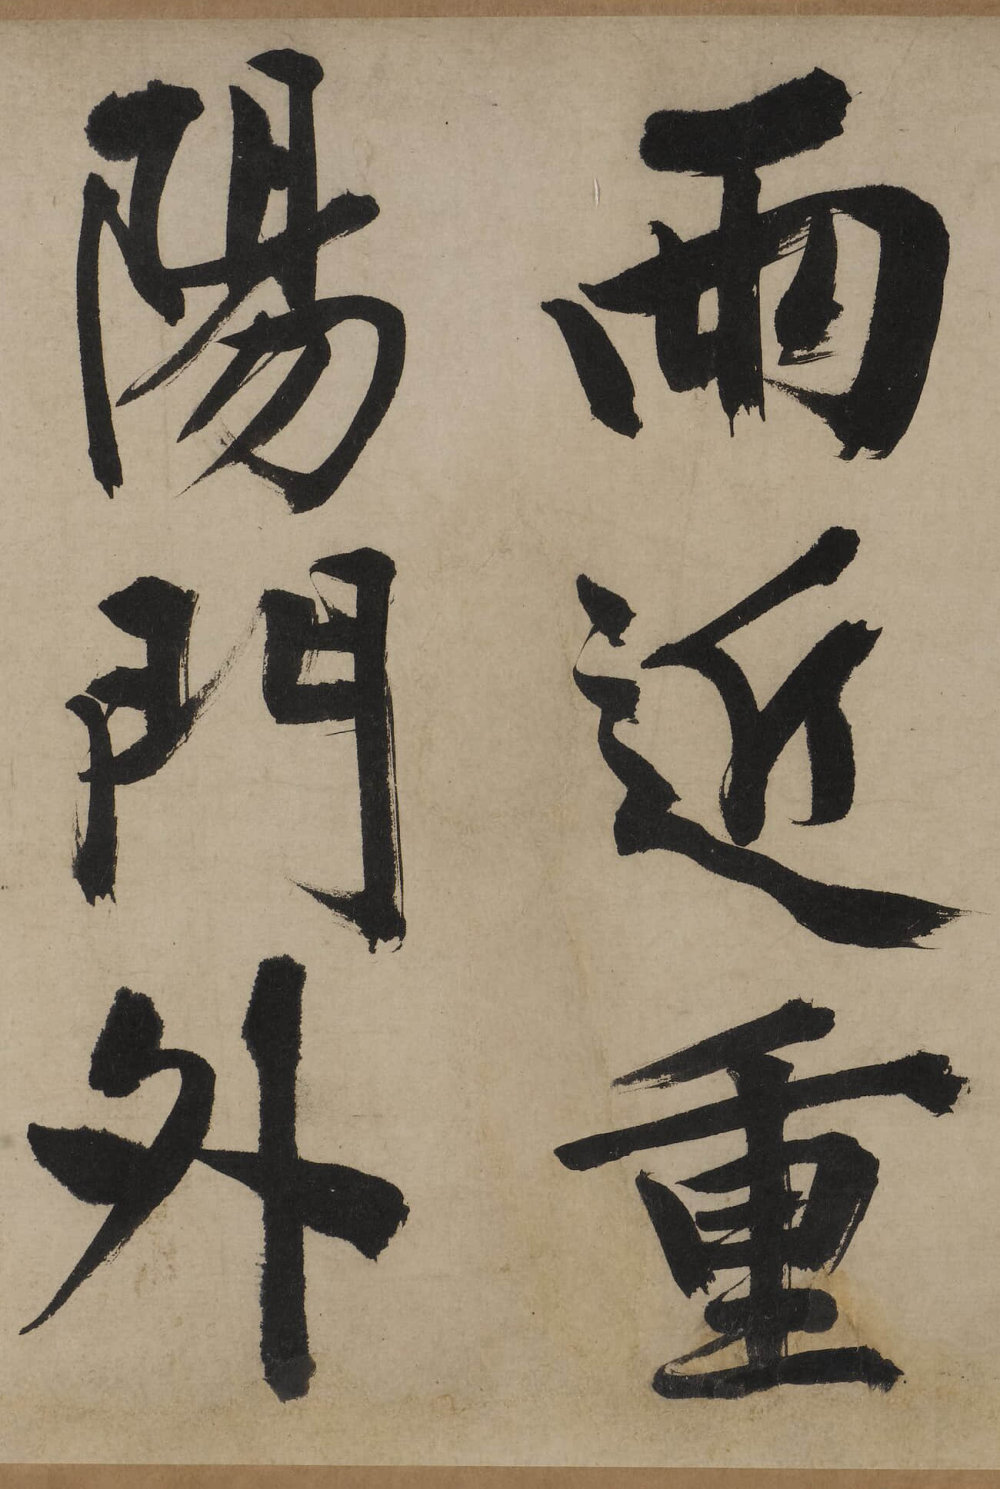 雨近重
陽門外